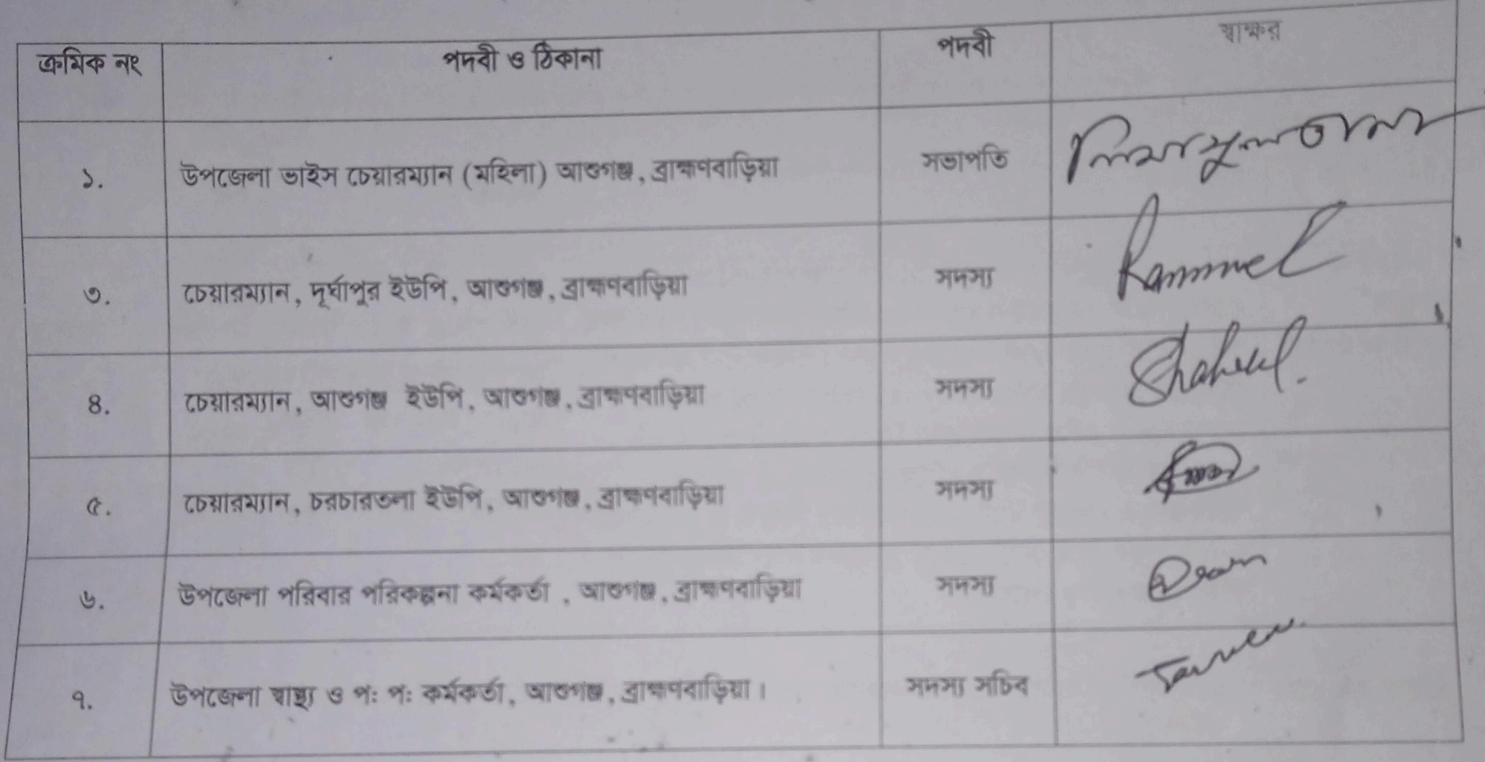 ক্রমিক নং পদবী ও ঠিকানা পদবী স্বাক্ষর
১. উপজেলা ভাইস চেয়ারম্যান (মহিলা) আশুগঞ্জ, ব্রাহ্মণবাড়িয়া সভাপতি
৩. চেয়ারম্যান, দূর্গাপুর ইউপি, আশুগঞ্জ, ব্রাহ্মণবাড়িয়া সদস্য Rammel
৪. চেয়ারম্যান, আশুগঞ্জ ইউপি, আশুগঞ্জ, ব্রাহ্মণবাড়িয়া সদস্য
৫. চেয়ারম্যান, চরচারতলা ইউপি, আশুগঞ্জ, ব্রাহ্মণবাড়িয়া সদস্য
৬. উপজেলা পরিবার পরিকল্পনা কর্মকর্তা , আশুগঞ্জ, ব্রাহ্মণবাড়িয়া সদস্য
৭. উপজেলা স্বাস্থ্য ও প: প: কর্মকর্তা, আশুগঞ্জ, ব্রাহ্মণবাড়িয়া। সদস্য সচিব